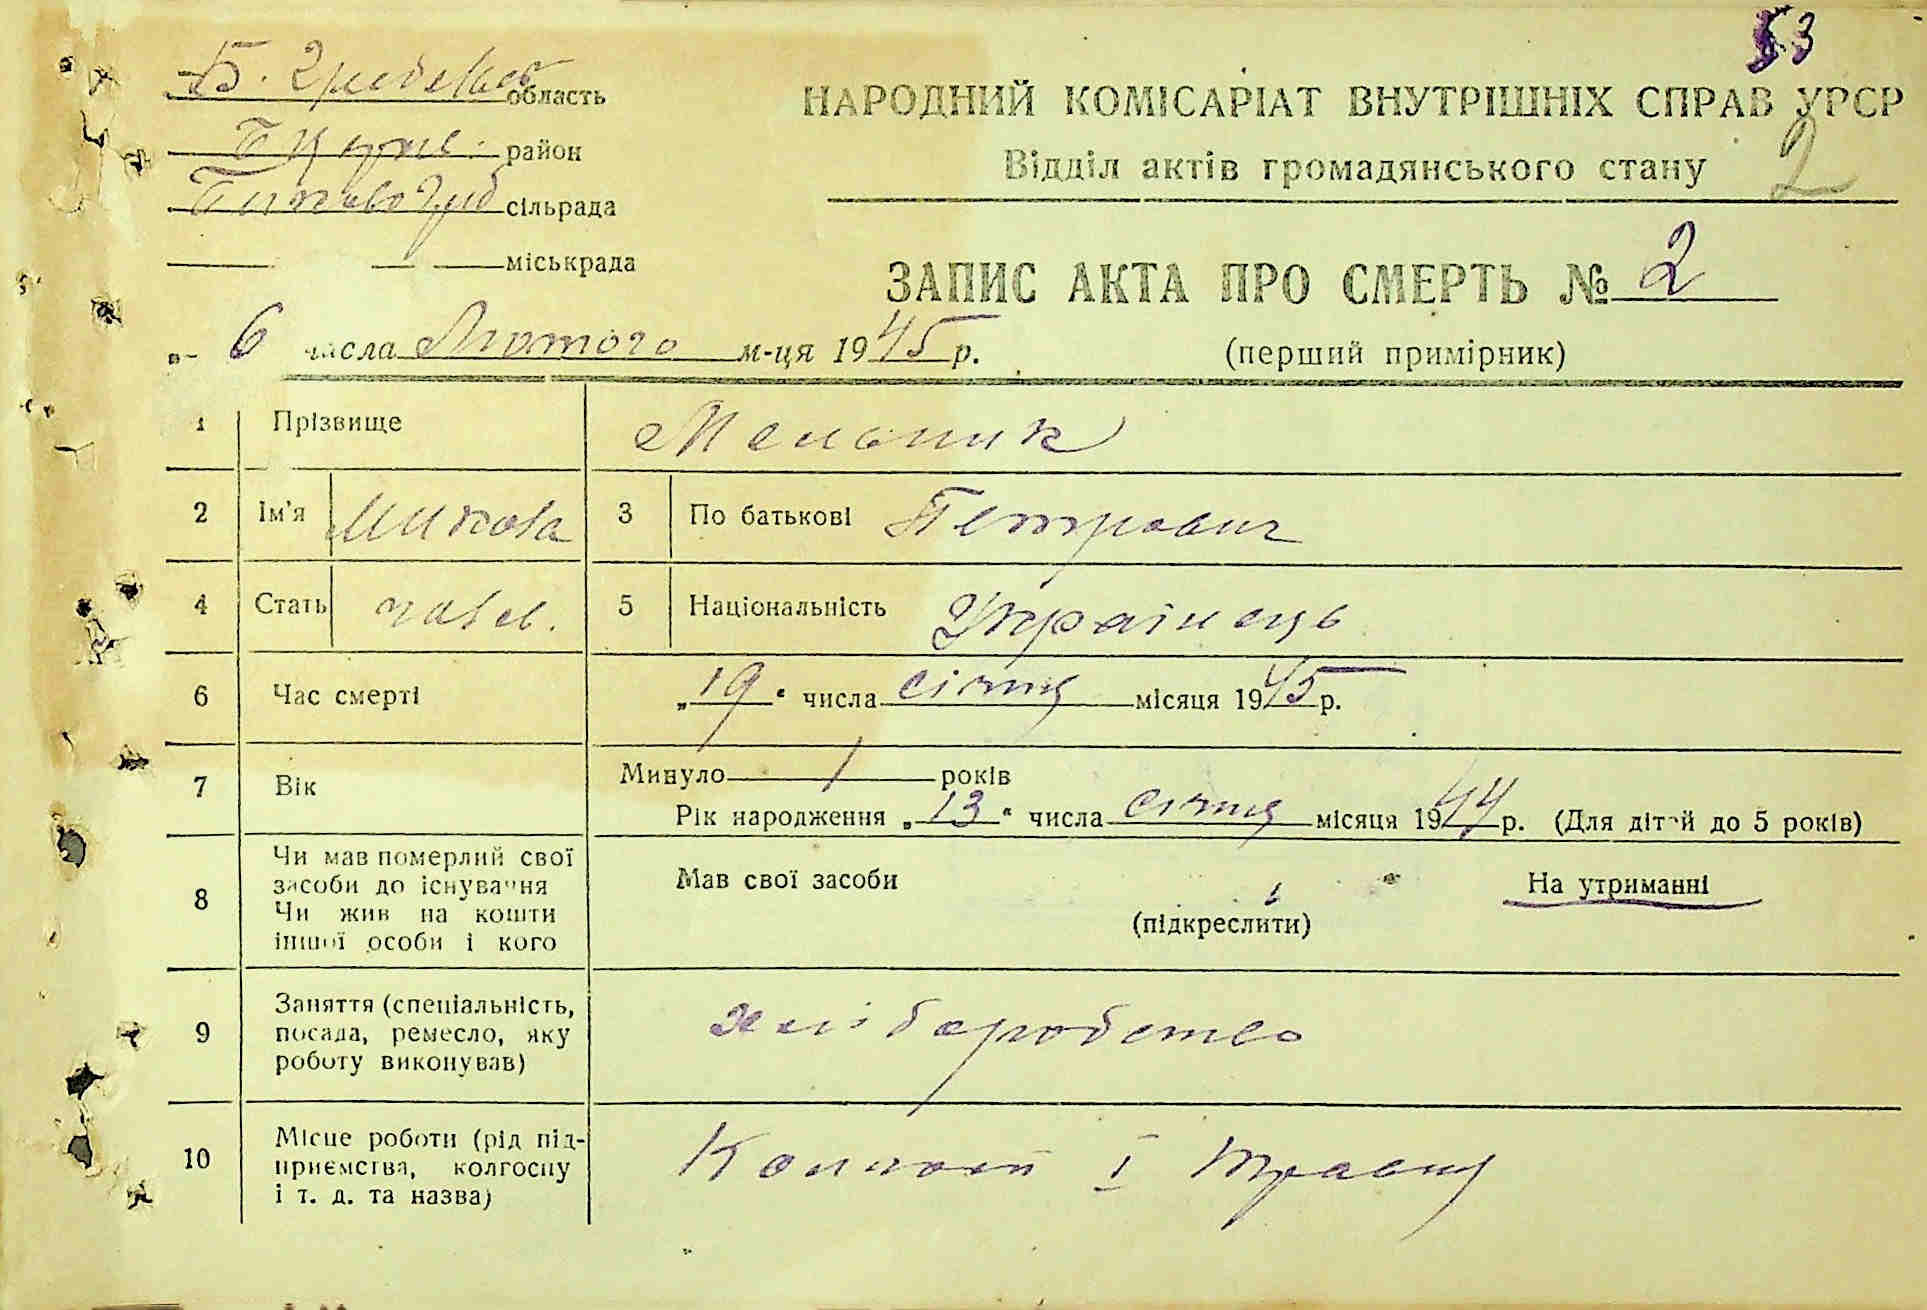 53
область
НАРОДНИЙ КОМІСАРІАТ ВНУТРІШНІХ СПРАВ УРСР
район
Відділ актів громадянського стану 2
сільрада
міськрада
ЗАПИС АКТА ПРО СМЕРТЬ № 2
6 числа Лютого м-ця 1945 р.
(перший примірник)
1 Прізвище Мельник
2 Ім'я Микола 3 По батькові Петрович
4 Стать чолов. 5 Національність Українець
6 Час смерті „19" числа січня місяця 1945 р.
7 Вік Минуло 1 років
Рік народження „13" числа січня місяця 1944 р. (Для дітей до 5 років)
8 Чи мав померлий свої
засоби до існування
Чи жив на кошти
іншої особи і кого
Мав свої засоби На утриманні
(підкреслити)
9 Заняття (спеціальність,
посада, ремесло, яку
роботу виконував)
хліборобство
10 Місце роботи (рід під-
приємства, колгоспу
і т. д. та назва)
Колгосп 1 Травня